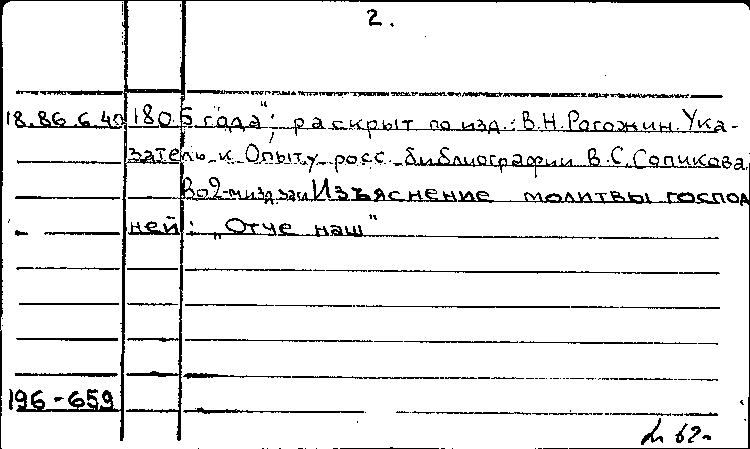 2.
18.86.6.40 1805 года"; раскрыт по изд.: В.Н.Рогожин. Ука-
затель к Опыту росс. библиографии В.С.Сопикова.
Во 2-м изд. заг. Изъяснение молитвы господ
ней: „Отче наш"
196-659